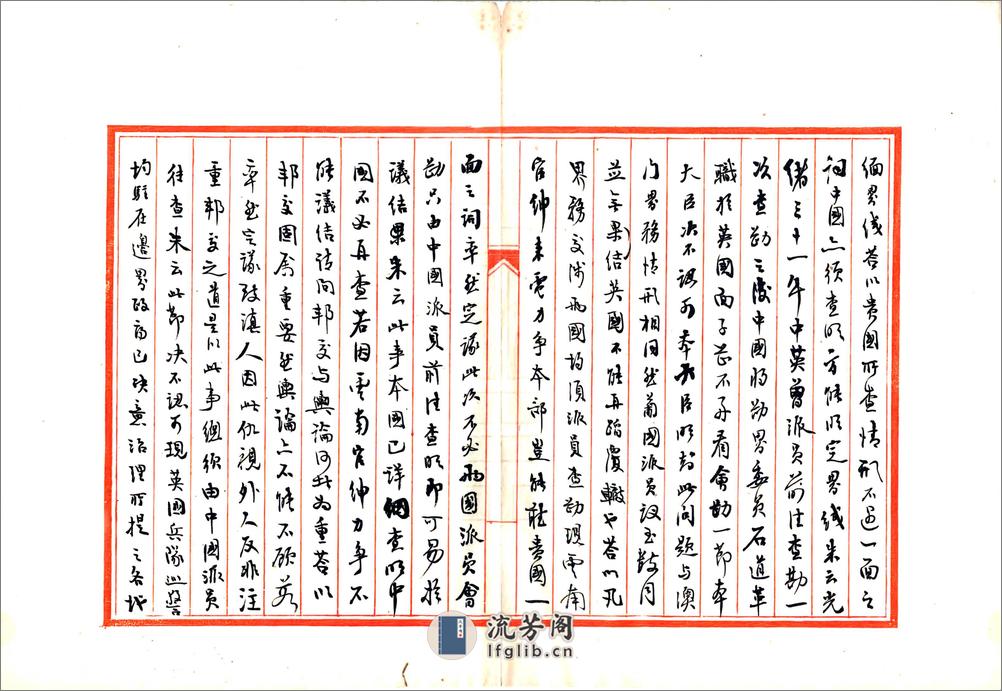 緬界儀答以貴國所查情形不過一面之
詞中國亦須查明方能明定界綫朱云光
緒三十一年中英曾派員前往查勘一
次查勘之後中國將勘界委員石道革
職於英國面子甚不好看會勘一節本
大臣决不認可萃大臣昨劼此問題與澳
門界務情形相同然葡國派員議至數月
並無果結英國不能再蹈覆轍也答以凡
界務交涉兩國均須派員查勘現雲南
官紳來電力爭本部豈能聽貴國一
面之詞率然定議此次不必兩國派員會
勘只由中國派員前往查明即可易於
議結果朱云此事本國已詳細查明中
國不必再查若因雲南官紳力爭不
能議結請問邦交與輿論何者為重答以
邦交固屬重要然輿論亦不能不顧若
率然定議致滇人因此仇視外人反非注
重邦交之道是以此事總須由中國派員
往查朱云此節决不認可現英國兵隊巡警
均駐在邊界政府已决意治理所提之各地
流芳阁
lfglib.cn